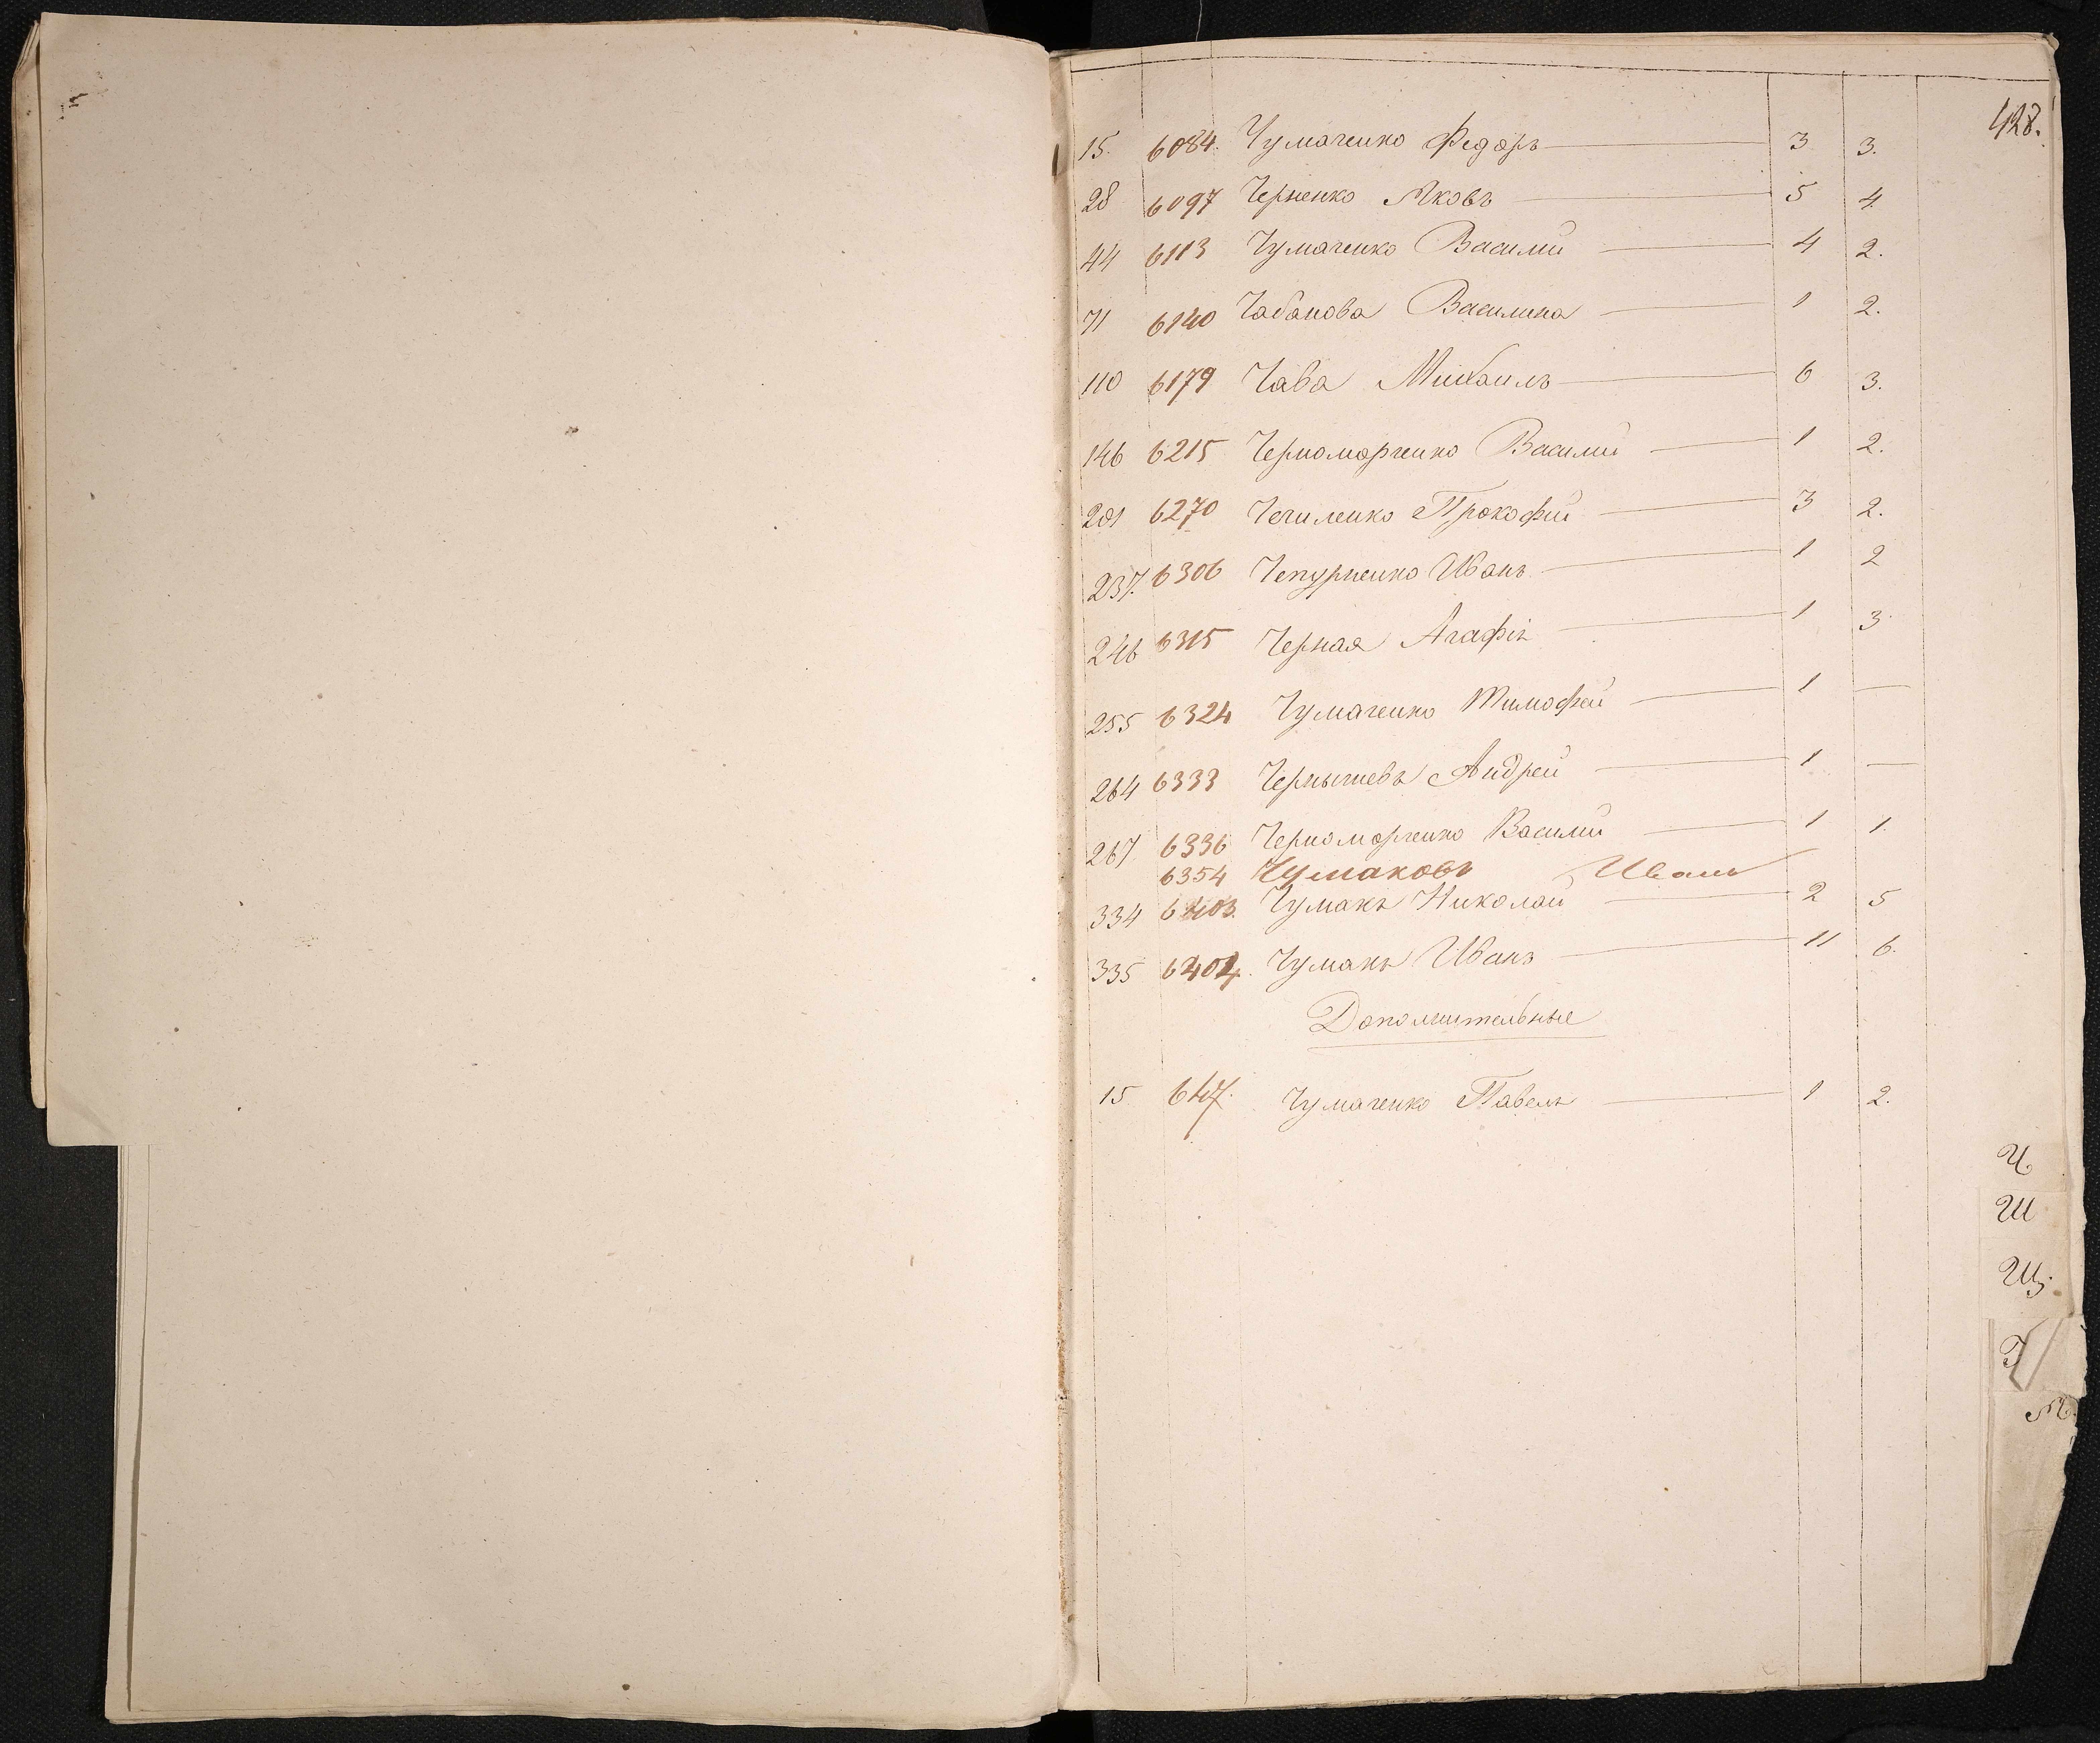 428.
15. 6084. Чумаченко Федоръ 3 3.
28 6097 Черненко Яковъ 5 4
44 6113 Чумаченко Василий 4 2.
71 6140 Чабанова Василина 1 2.
110 6179 Чава Михаилъ 6 3.
146 6215 Черноморченко Василий 1 2.
201 6270 Чечиленко Прокофий 3 2.
237. 6306 Чепурненко Иванъ 1 2
246 6315 Черная Агафія 1 3.
255 6324 Чумаченко Тимофей 1 —
264 6333 Чернышевъ Андрей 1 —
267 6336 Черноморченко Василий 1 1.
6354 Чумаковъ Иванъ
334 6403. Чумакъ Николай 2 5
335 6404. Чумакъ Иванъ 11 6.
Дополнительные
15 Чумаченко Павелъ 1 2.
Ч
Ш
Щ.